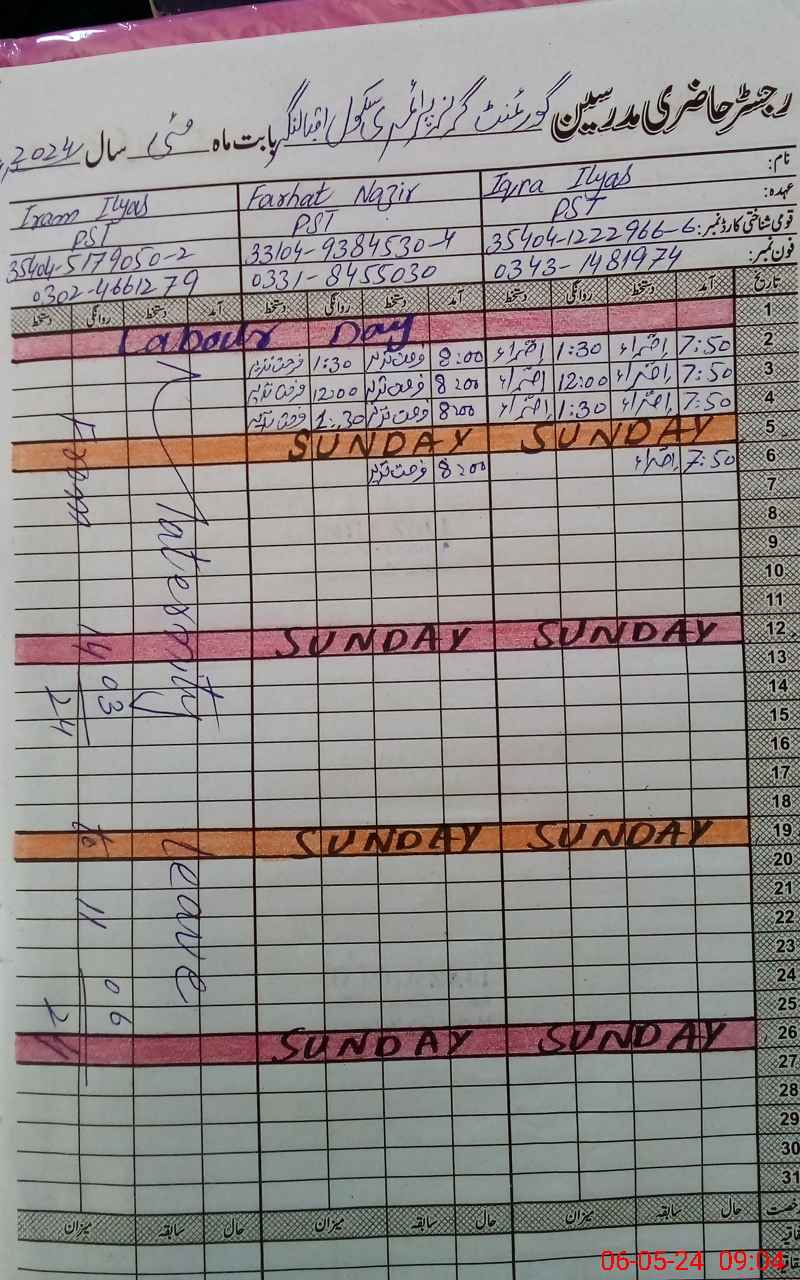 رجسٹر حاضری مدرسین گورنمنٹ گرلز پرائمری سکول اقبالنگر بابت ماہ مئی سال 2024ء
نام: Iqra Ilyas Farhat Nazir Iram Ilyas
عہدہ: PST PST PST
قومی شناختی کارڈ نمبر: 35404-1222966-6 33104-9384530-4 35404-5179050-2
فون نمبر: 0343-1481974 0331-8455030 0302-4661279
تاریخ آمد دستخط روانگی دستخط آمد دستخط روانگی دستخط آمد دستخط روانگی دستخط
1 Labour Day
2 7:50 اقراء 1:30 اقراء 8:00 فرحت نذیر 1:30 فرحت نذیر
3 7:50 اقراء 12:00 اقراء 8:00 فرحت نذیر 12:00 فرحت نذیر
4 7:50 اقراء 1:30 اقراء 8:00 فرحت نذیر 1:30 فرحت نذیر
5 SUNDAY SUNDAY
6 7:50 اقراء 8:00 فرحت نذیر
7
8
9
10
11
12 SUNDAY SUNDAY
13
14
15
16
17
18
19 SUNDAY SUNDAY
20
21
22
23
24
25
26 SUNDAY SUNDAY
27
28
29
30
31
Maternity leave
From 14 03 24 to 11 06 24
رخصت حال سابقہ میزان حال سابقہ میزان حال سابقہ میزان
06-05-24 09:04